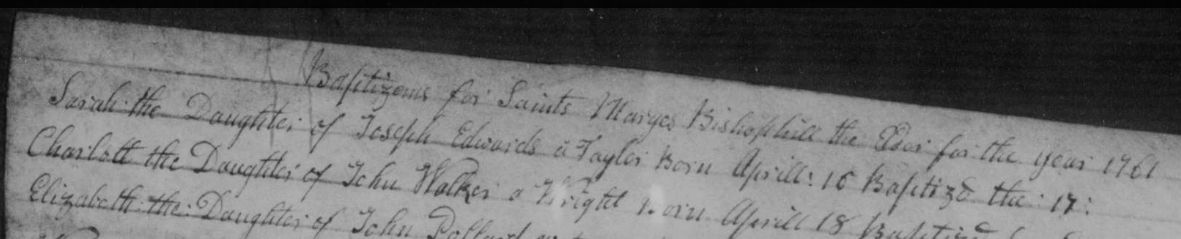 Baptizems for Saints Maryes Bishophill the Elder for the year 1761
Sarah the Daughter of Joseph Edwards a Taylor Born Aprill: 16 Baptized the: 17:
Charlott the Daughter of John Walker a Wright Born Aprill 18 Baptized
Elizabeth: the: Daughter of John Pollard